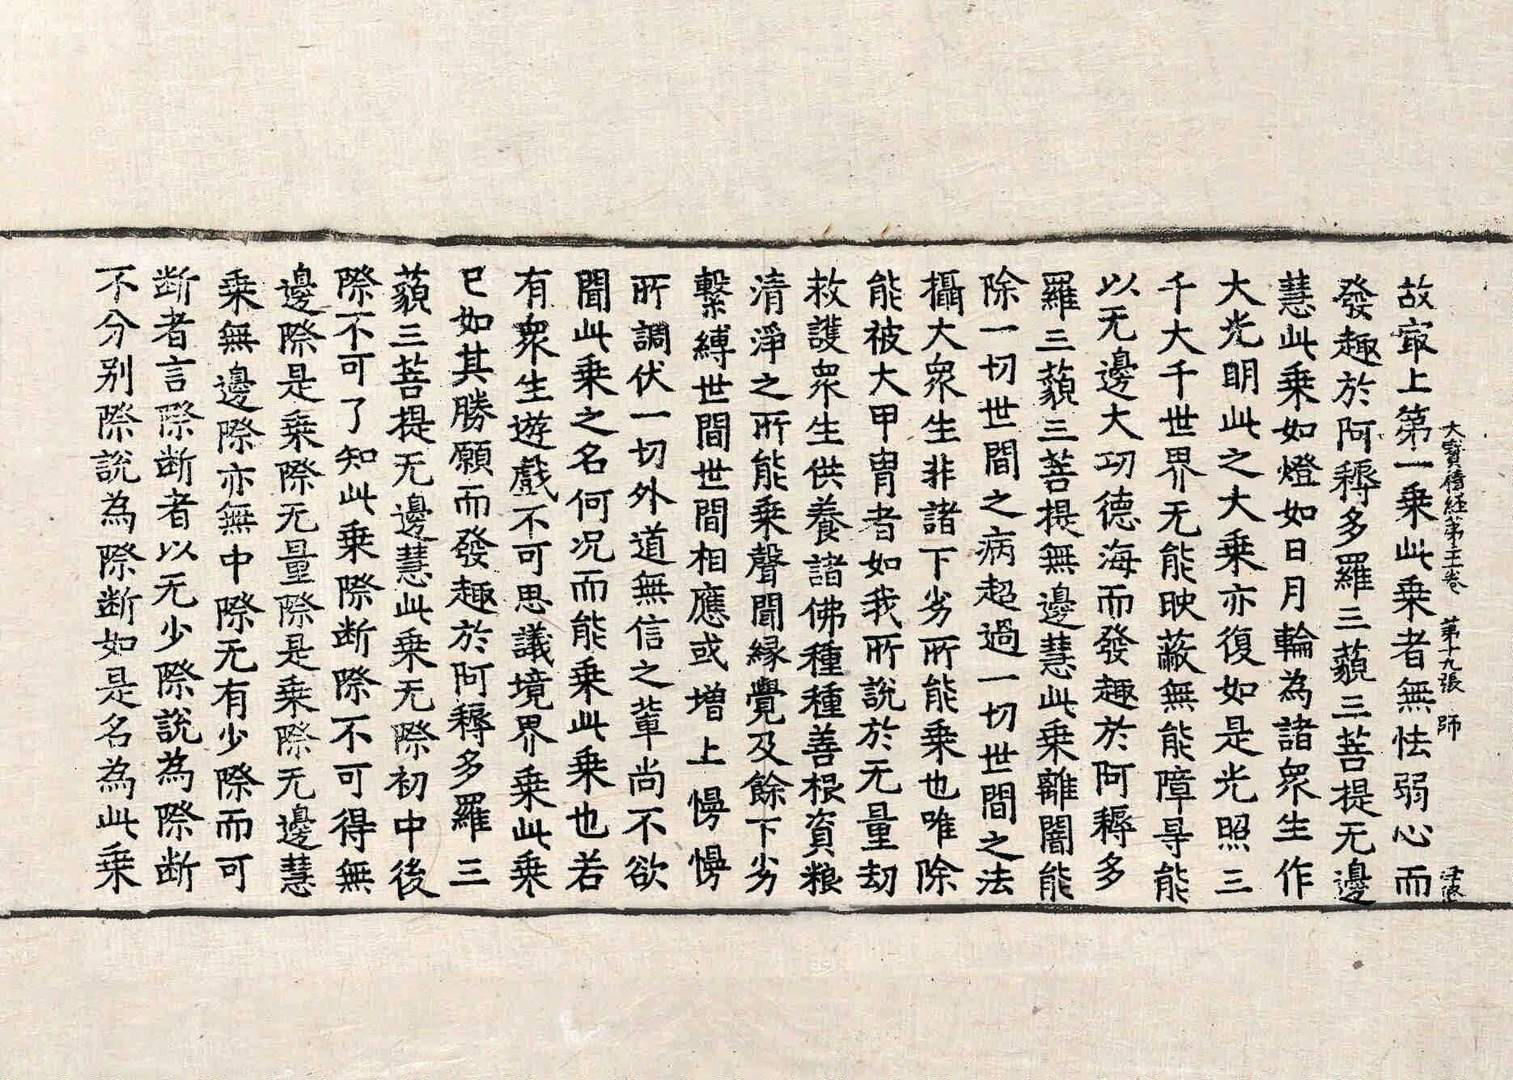 大寶積經第 卷 第十九張 師
故㝡上第一乗此乗者無怯弱心而
發趣於阿耨多羅三藐三菩提无邊
慧此乗如燈如日月輪為諸衆生作
大光明此之大乗亦復如是光照三
千大千世界无能映蔽無能障㝵能
以无邊大功德海而發趣於阿耨多
羅三藐三菩提無邊慧此乗離闇能
除一切世間之病超過一切世間之法
攝大衆生非諸下劣所能乗也唯除
能被大甲冑者如我所說於无量劫
救護衆生供養諸佛種種善根資粮
清淨之所能乗聲聞縁覺及餘下劣
繫縛世間世間相應或增上慢慢
所調伏一切外道無信之輩尚不欲
聞此乗之名何况而能乗此乗也若
有衆生遊戲不可思議境界乗此乗
已如其勝願而發趣於阿耨多羅三
藐三菩提无邊慧此乗无際初中後
際不可了知此乗際断際不可得無
邊際是乗際无量際是乗際无邊慧
乗無邊際亦無中際无有少際而可
断者言際断者以无少際說為際断
不分别際說為際断如是名為此乗